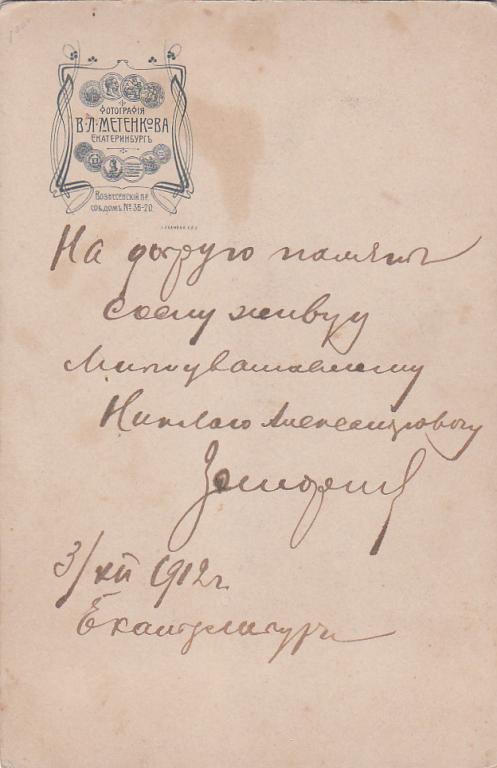 ФОТОГРАФІЯ
В.Л. МЕТЕНКОВА
ЕКАТЕРИНБУРГЪ
ВОЗНЕСЕНСКІЙ ПР.
СОБ. ДОМЪ № 36-20.
На добрую память
сослуживцу
Николаю Александровичу
3/XII 1912 г.
Екатеринбург